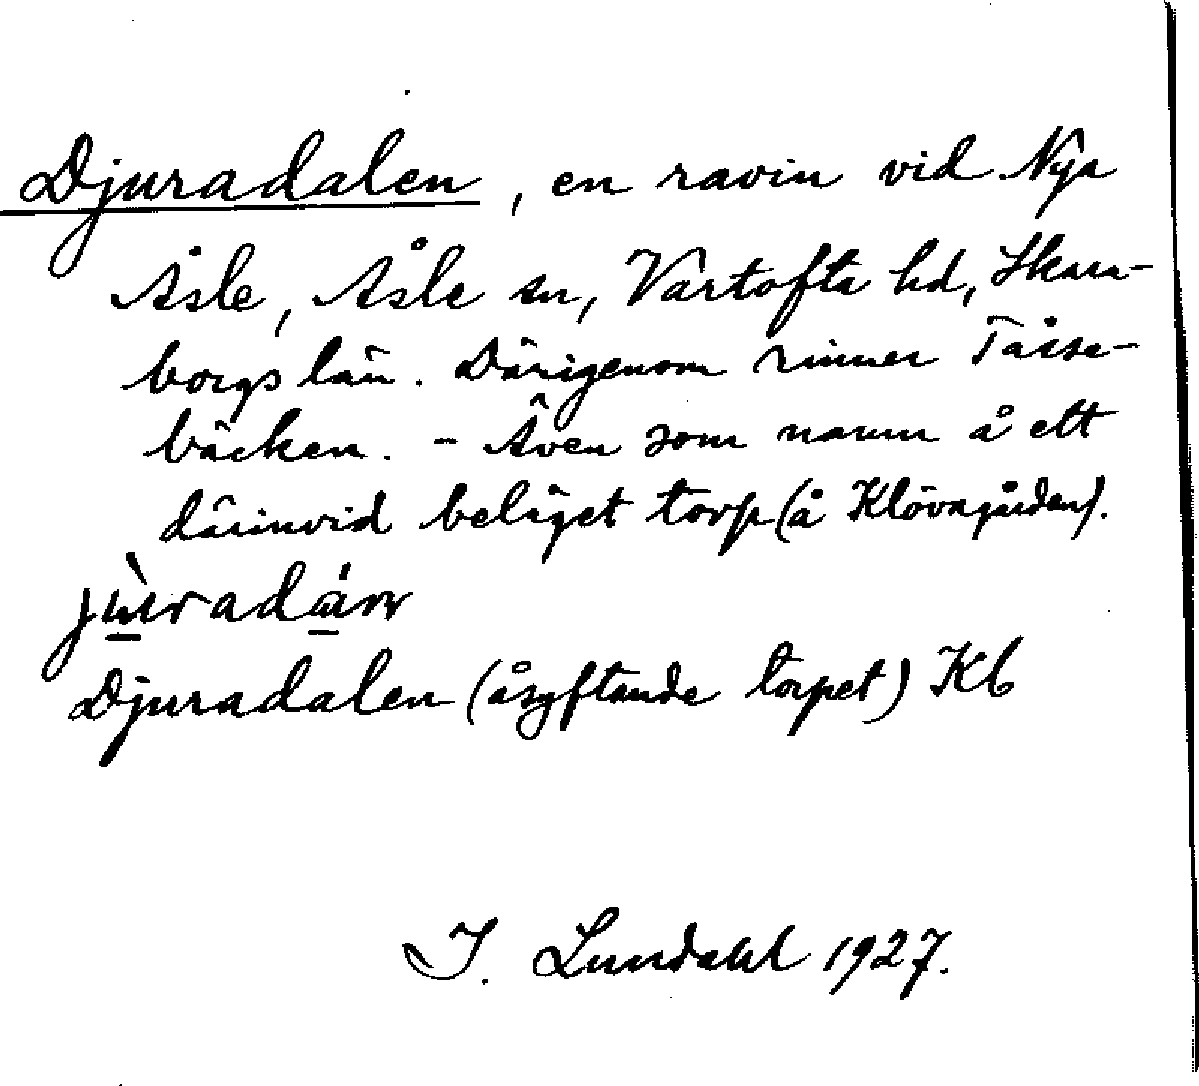 Djuradalen, en ravin vid Nya
Åsle, Åsle sn, Vartofta hd, Skara-
borgs län. Därigenom rinner Tåsse-
bäcken. - Även som namn å ett
därinvid beläget torp (å Klövagården).
Djuradalen (åsyftande torpet) Kb
I. Lundahl 1927.